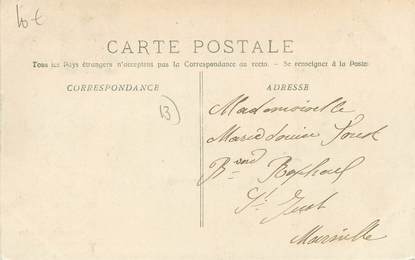 10 €
CARTE POSTALE
Tous les Pays étrangers n'acceptent pas la Correspondance au recto. - Se renseigner à la Poste
CORRESPONDANCE
ADRESSE
13
Mademoiselle
Marie Louise
Bᵈ Raphael
St Just
Marseille